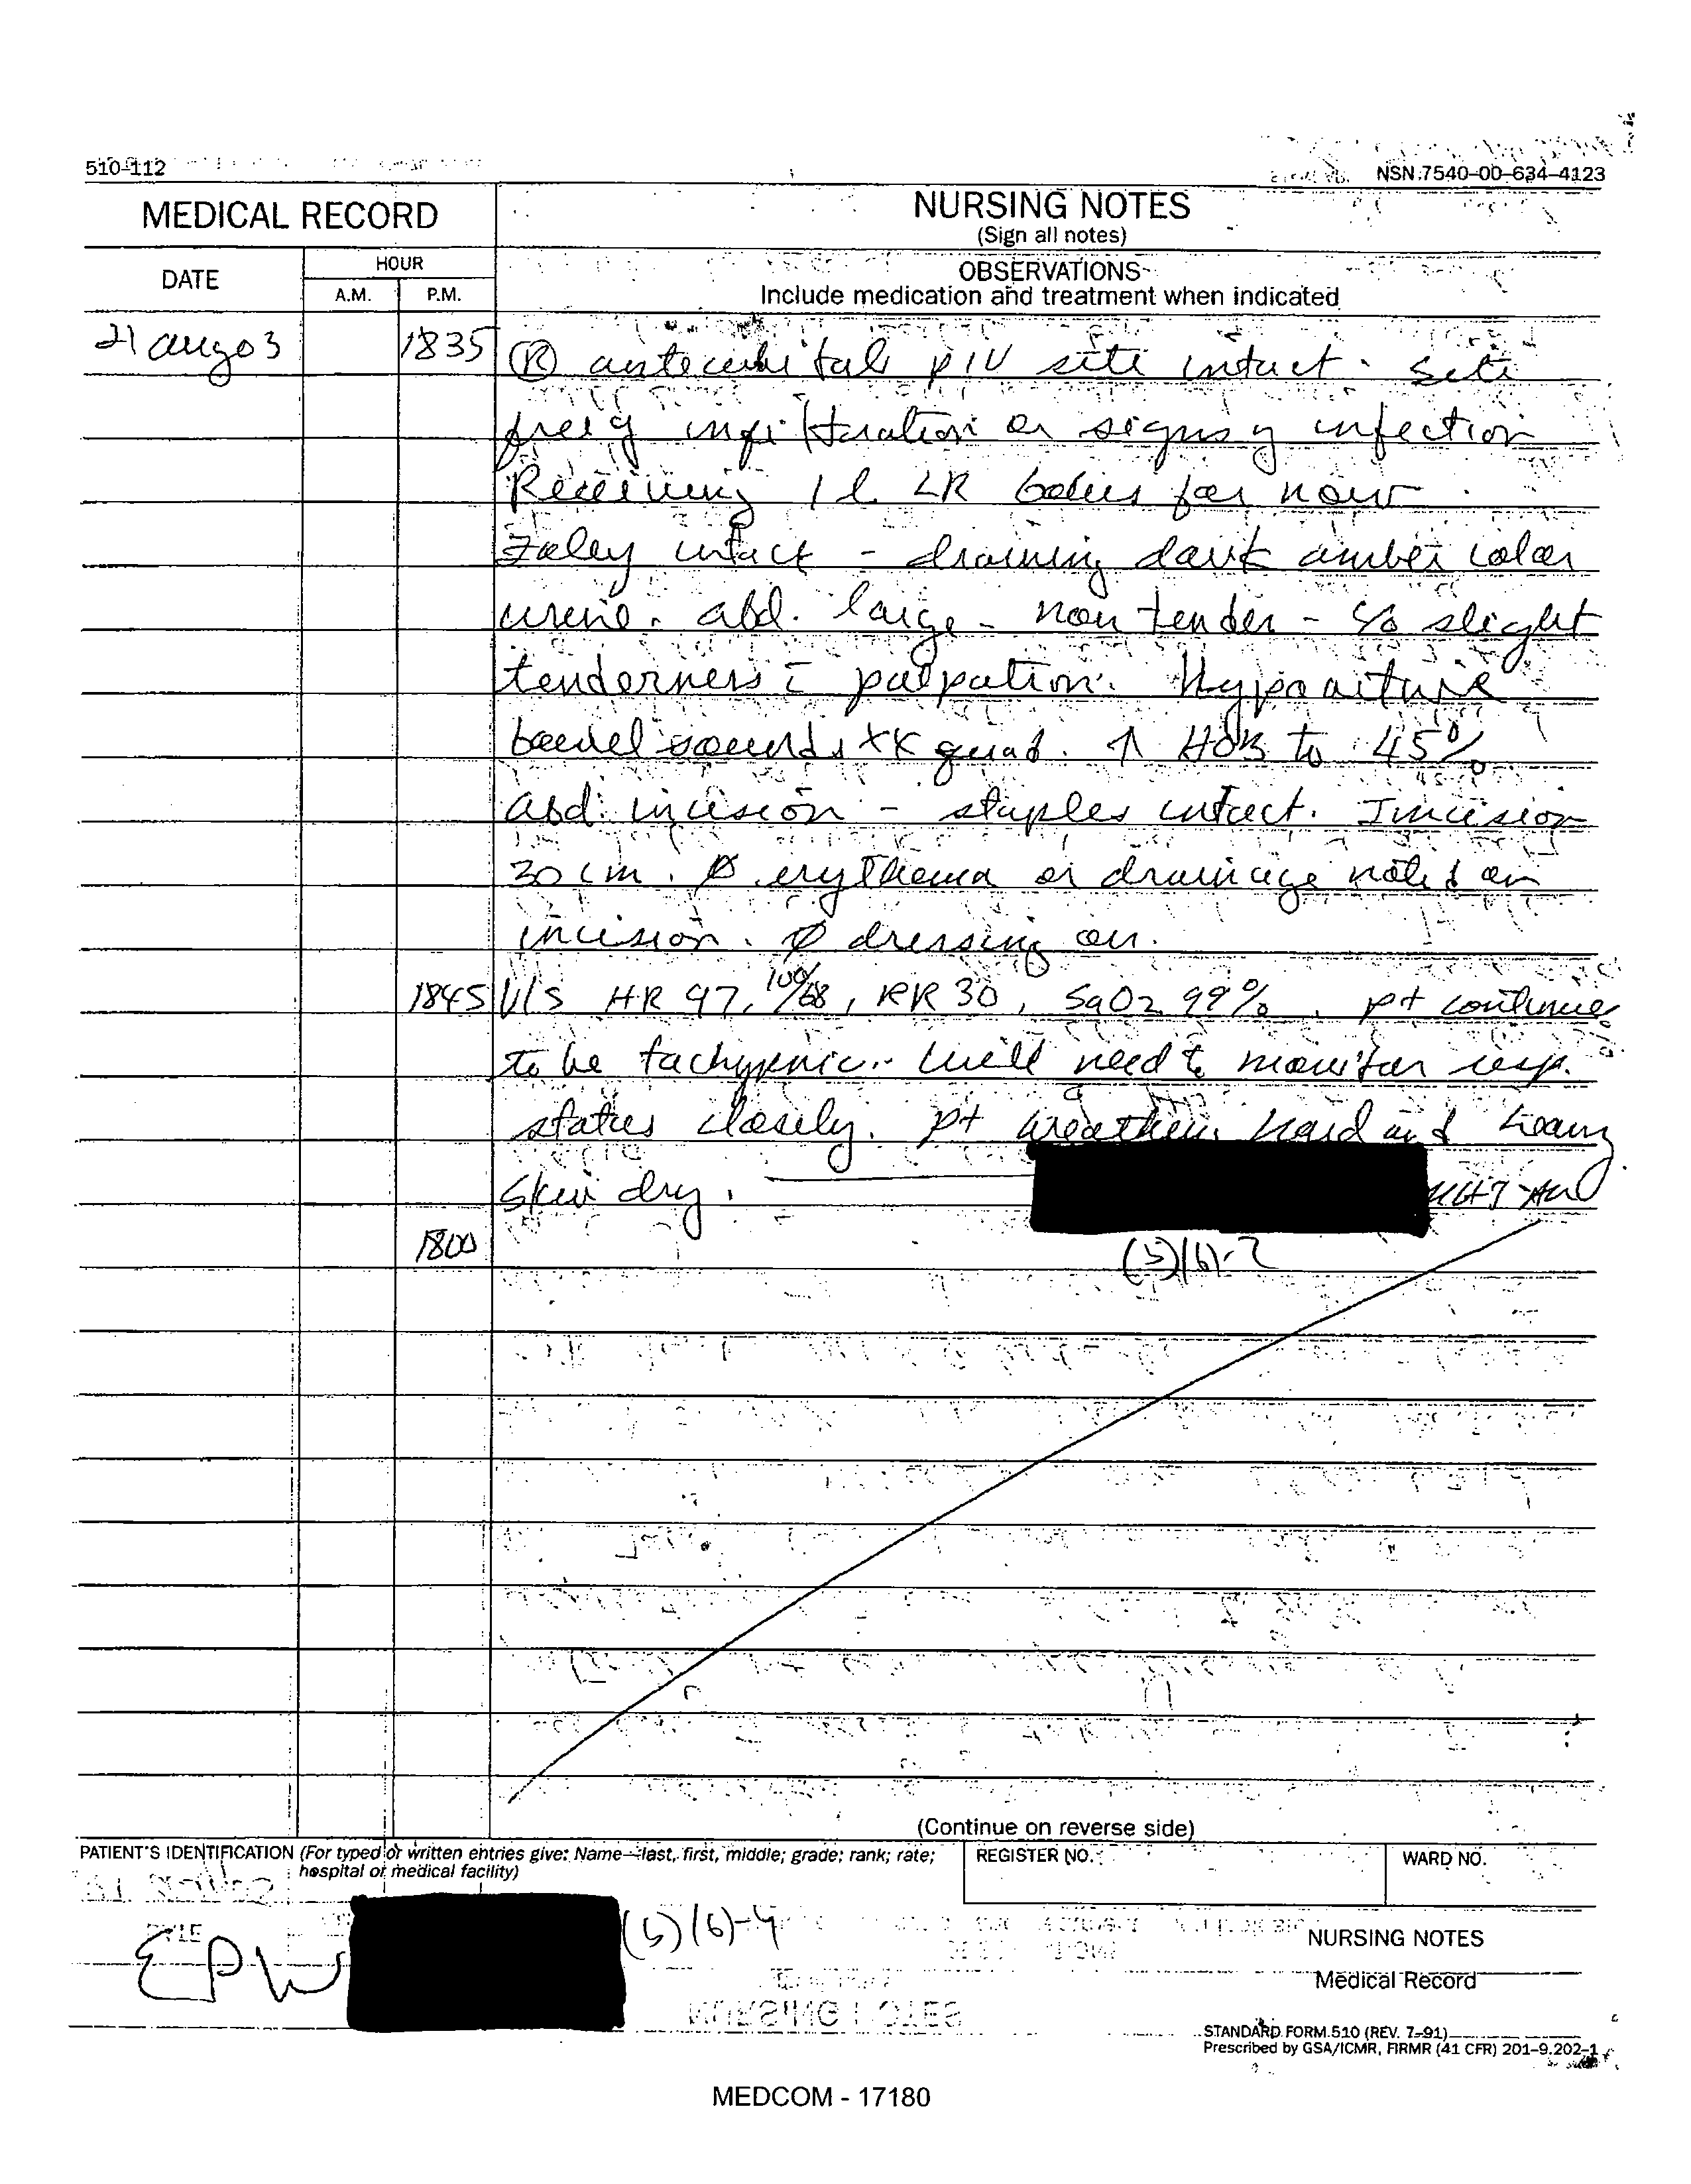 510-112
NSN 7540-00-634-4123
MEDICAL RECORD
NURSING NOTES
(Sign all notes)
DATE
HOUR
A.M.
P.M.
OBSERVATIONS
Include medication and treatment when indicated
21 aug 03 1835 Ⓡ antecubital PIV site intact. Site
free of infiltration or signs of infection
Receiving 1 L LR bolus for now.
Foley intact - draining dark amber color
urine. abd. large - non tender - c/o slight
tenderness c̄ palpation. Hypoactive
bowel sounds x4 quad. ↑ HOB to 45°.
abd incision - staples intact. Incision
30 cm. Ø erythema or drainage noted on
incision. Ø dressing on.
1845 V/S HR 97, 100/68, RR 30, SaO2 99%. pt continues
to be tachypneic. Will need to monitor resp.
status closely. pt breathing hard and heavy
Skin dry.
(b)(6)-2
1800
(Continue on reverse side)
PATIENT'S IDENTIFICATION (For typed or written entries give: Name—last, first, middle; grade; rank; rate;
hospital or medical facility)
REGISTER NO.
WARD NO.
EPW
(b)(6)-4
NURSING NOTES
Medical Record
STANDARD FORM 510 (REV. 7-91)
Prescribed by GSA/ICMR, FIRMR (41 CFR) 201-9.202-1
MEDCOM - 17180